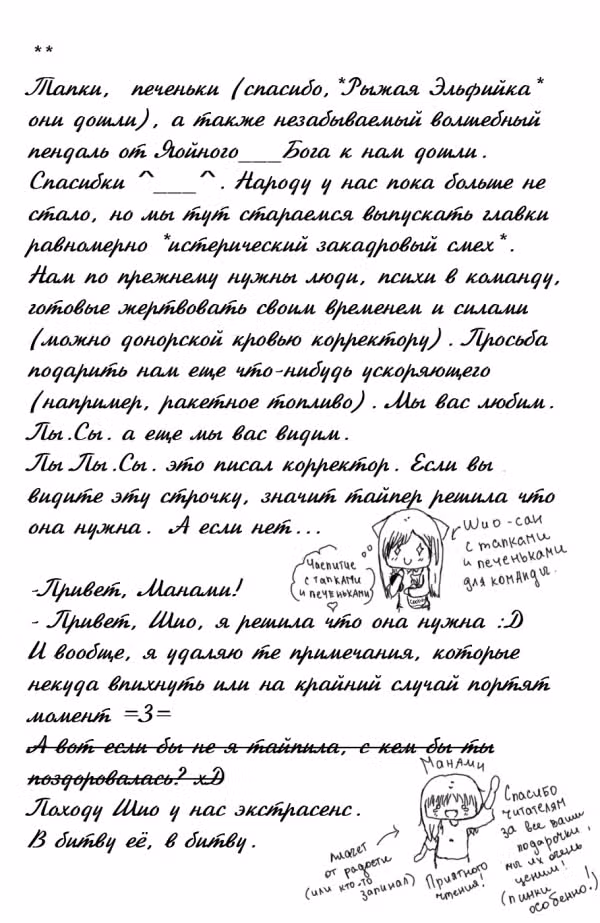 **
Тапки, печеньки (спасибо, *Рыжая Эльфийка*
они дошли), а также незабываемый волшебный
пендаль от Яойного___Бога к нам дошли.
Спасибки ^___^. Народу у нас пока больше не
стало, но мы тут стараемся выпускать главки
равномерно *истерический закадровый смех*.
Нам по прежнему нужны люди, психи в команду,
готовые жертвовать своим временем и силами
(можно донорской кровью корректору). Просьба
подарить нам еще что-нибудь ускоряющего
(например, ракетное топливо). Мы вас любим.
Пы.Сы. а еще мы вас видим.
Пы.Пы.Сы. это писал корректор. Если вы
видите эту строчку, значит тайпер решила что
она нужна. А если нет...
Шио-сан
с тапками
и печеньками
для команды.
Чаепитие
с тапками
и печеньками
-Привет, Манами!
- Привет, Шио, я решила что она нужна :D
И вообще, я удаляю те примечания, которые
некуда впихнуть или на крайний случай портят
момент =3=
А вот если бы не я тайпила, с кем бы ты
поздоровалась? xD
Походу Шио у нас экстрасенс.
В битву её, в битву.
Манами
Спасибо
читателям
за все ваши
подарочки,
мы их очень
ценим!
(пинки
особенно!)
летает
от радости
(или кто-то
запинал)
Приятного
чтения!